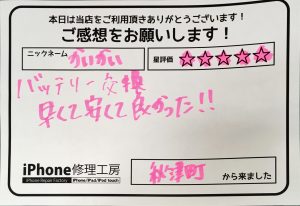 本日は当店をご利用頂きありがとうございます！
ご感想をお願いします！
ニックネーム かいかい 星評価 ☆☆☆☆☆
バッテリー交換
早くて安くて良かった!!
iPhone修理工房
iPhone Repair Factory iPhone/iPad/iPod touch
秋津町 から来ました